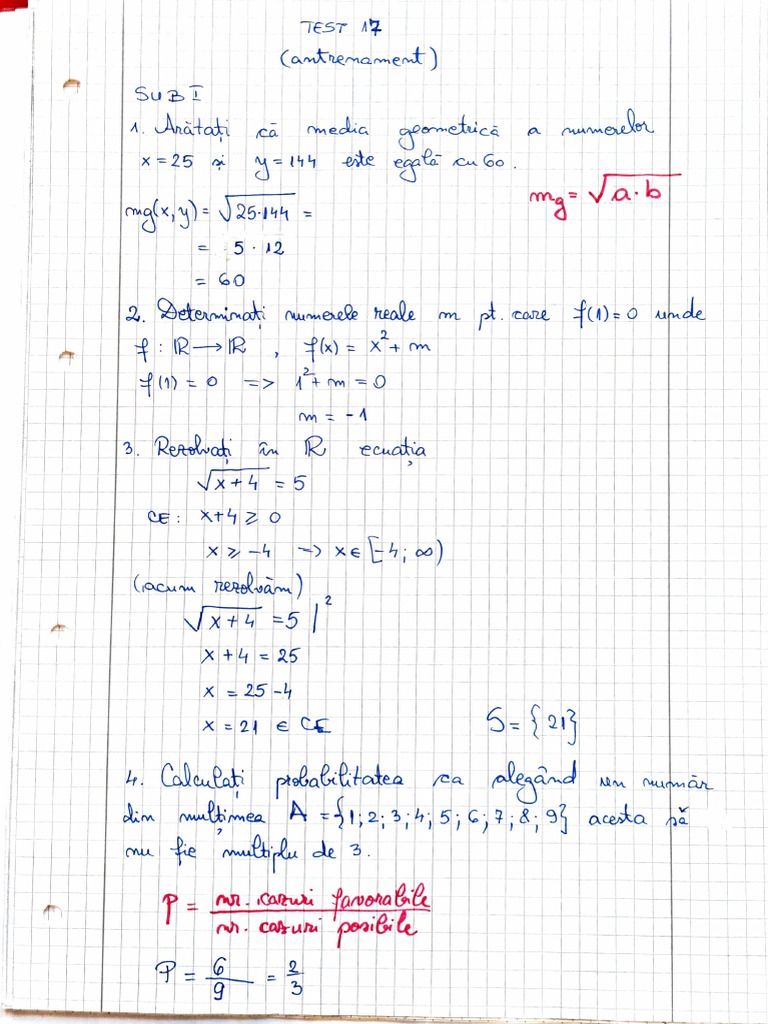 TEST 17
(antrenament)
SUB I
1. Arătați că media geometrică a numerelor
x = 25 și y = 144 este egală cu 60.
mg = √(a·b)
mg(x, y) = √(25·144) =
= 5 · 12
= 60
2. Determinați numerele reale m pt. care f(1) = 0 unde
f : ℝ → ℝ , f(x) = x² + m
f(1) = 0 => 1² + m = 0
m = -1
3. Rezolvați în ℝ ecuația
√(x+4) = 5
CE: x+4 ≥ 0
x ≥ -4 → x ∈ [-4; ∞)
(acum rezolvăm)
√(x+4) = 5 |²
x + 4 = 25
x = 25 - 4
x = 21 ∈ CE S = {21}
4. Calculați probabilitatea ca alegând un număr
din mulțimea A = {1; 2; 3; 4; 5; 6; 7; 8; 9} acesta să
nu fie multiplu de 3.
P = nr. cazuri favorabile / nr. cazuri posibile
P = 6/9 = 2/3